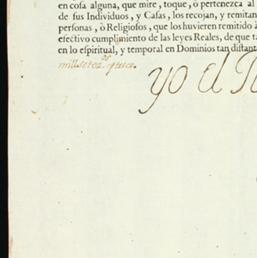 en cosa alguna, que mire, toque, ò pertenezca al
de sus Individuos, y Casas, los recojan, y remitan
personas, ò Religiosos, que los huvieren remitido à
efectivo cumplimiento de las leyes Reales, de que t
en lo espiritual, y temporal en Dominios tan distant
mill setez.os y trece.
yo el R